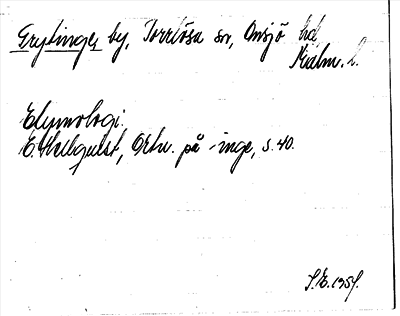 Grytinge, by, Torrlösa sn, Onsjö hd
Malm. l.
Etymologi.
E. Hellquist, Ortn. på -inge, s. 40.
S.E. 1951.